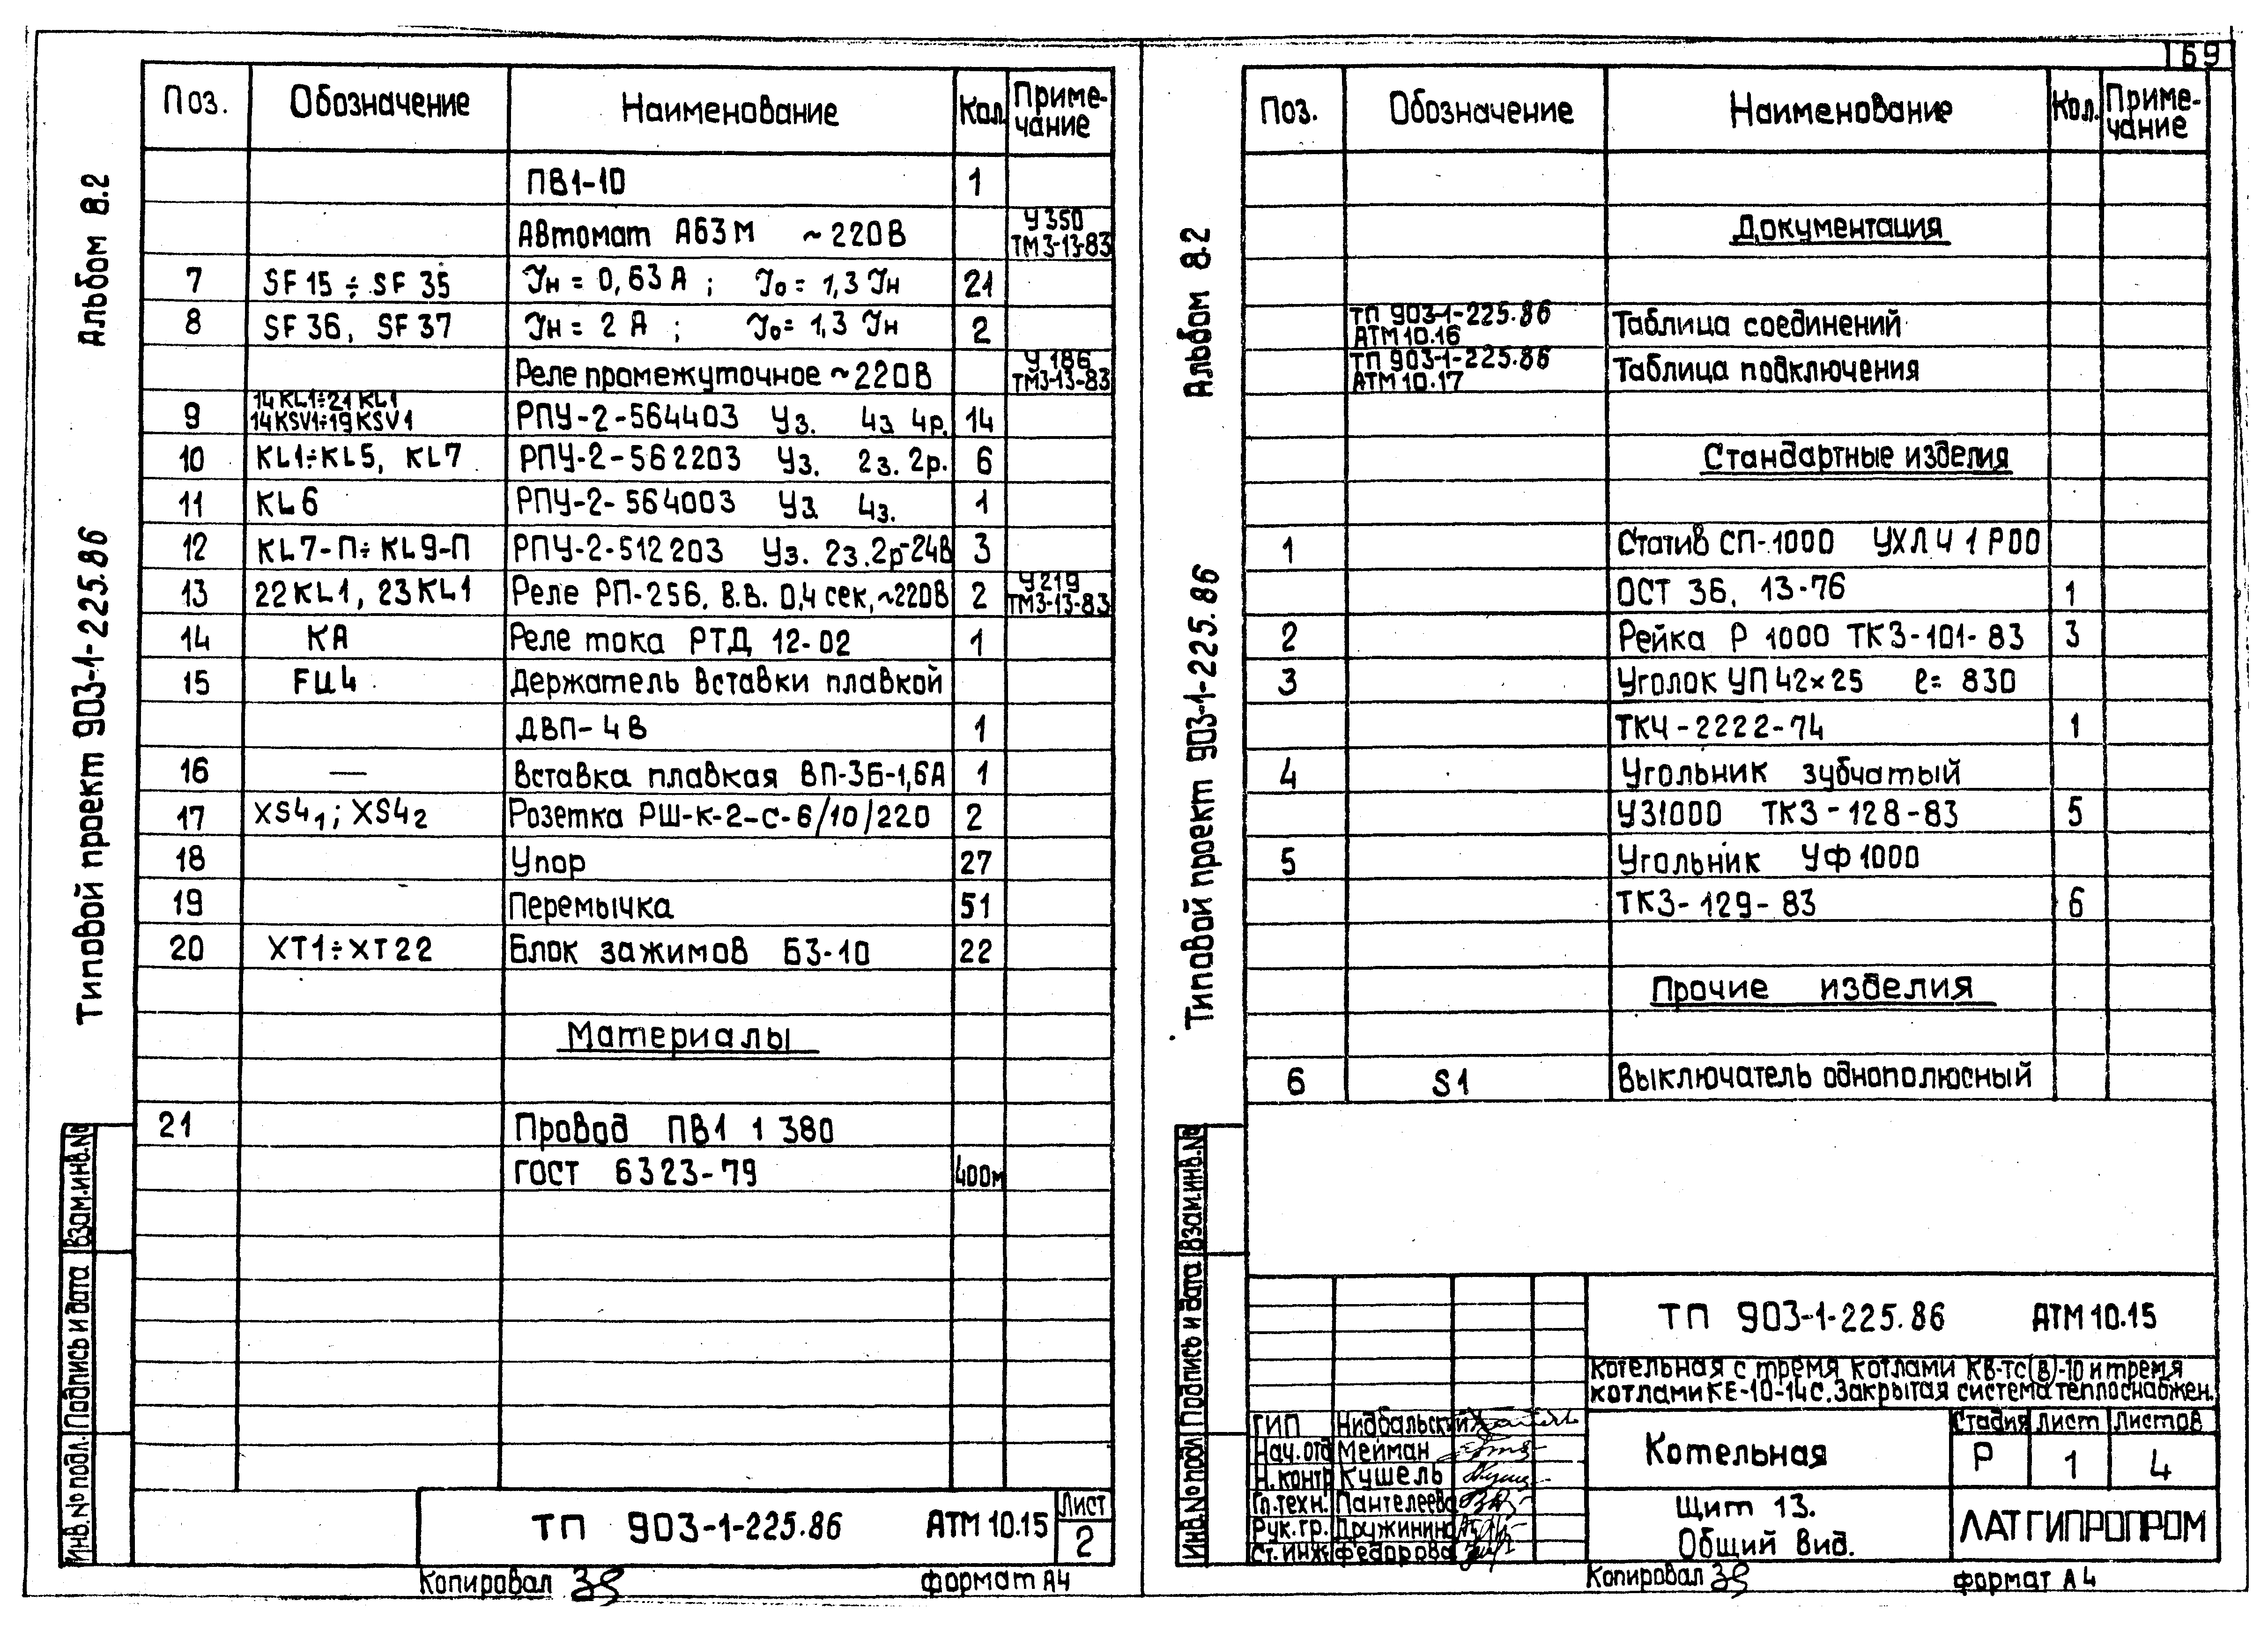 169
Альбом 8.2
Типовой проект 903-1-225.86
Поз. Обозначение Наименование Кол. Приме-
чание
ПВ1-10 1
Автомат А63М ~220В У350 ТМ3-13-83
7 SF15÷SF35 Iн = 0,63А ; Iо = 1,3 Iн 21
8 SF36, SF37 Iн = 2А ; Iо = 1,3 Iн 2
Реле промежуточное ~220В У186 ТМ3-13-83
9 14KL1÷21KL1 14KSV1÷19KSV1 РПУ-2-564403 Уз. 4з 4р. 14
10 KL1÷KL5, KL7 РПУ-2-562203 Уз. 2з. 2р. 6
11 KL6 РПУ-2-564003 Уз 4з. 1
12 KL7-П÷KL9-П РПУ-2-512203 Уз. 2з.2р-24В 3
13 22KL1, 23KL1 Реле РП-256, В.В. 0,4 сек,~220В 2 У219 ТМ3-13-83
14 КА Реле тока РТД 12-02 1
15 FU4 Держатель вставки плавкой
ДВП-4В 1
16 — Вставка плавкая ВП-3Б-1,6А 1
17 XS4₁; XS4₂ Розетка РШ-К-2-С-6/10/220 2
18 Упор 27
19 Перемычка 51
20 XT1÷XT22 Блок зажимов БЗ-10 22
Материалы
21 Провод ПВ1 1 380
ГОСТ 6323-79 400м
Взам.инв.№
Подпись и дата
Инв.№ подл.
ТП 903-1-225.86 АТМ10.15 Лист
2
Копировал
формат А4
Альбом 8.2
Типовой проект 903-1-225.86
Поз. Обозначение Наименование Кол. Приме-
чание
Документация
ТП 903-1-225.86 АТМ10.16 Таблица соединений
ТП 903-1-225.86 АТМ10.17 Таблица подключения
Стандартные изделия
1 Статив СП-1000 УХЛ4 1Р00
ОСТ 36. 13-76 1
2 Рейка Р 1000 ТК3-101-83 3
3 Уголок УП 42×25 ℓ= 830
ТК4-2222-74 1
4 Угольник зубчатый
УЗ1000 ТК3-128-83 5
5 Угольник УФ1000
ТК3-129-83 6
Прочие изделия
6 S1 Выключатель однополюсный
Взам.инв.№
Подпись и дата
Инв.№ подл
ТП 903-1-225.86 АТМ10.15
Котельная с тремя котлами КВ-ТС(В)-10 и тремя
котлами КЕ-10-14С. Закрытая система теплоснабжен.
ГИП Нидбальский
Нач.отд Мейман
Н.контр Кушель
Гл.техн. Пантелеева
Рук.гр. Дружинина
Ст.инж. Федорова
Котельная
Стадия Лист Листов
Р 1 4
Щит 13.
Общий вид.
ЛАТГИПРОПРОМ
Копировал
формат А4